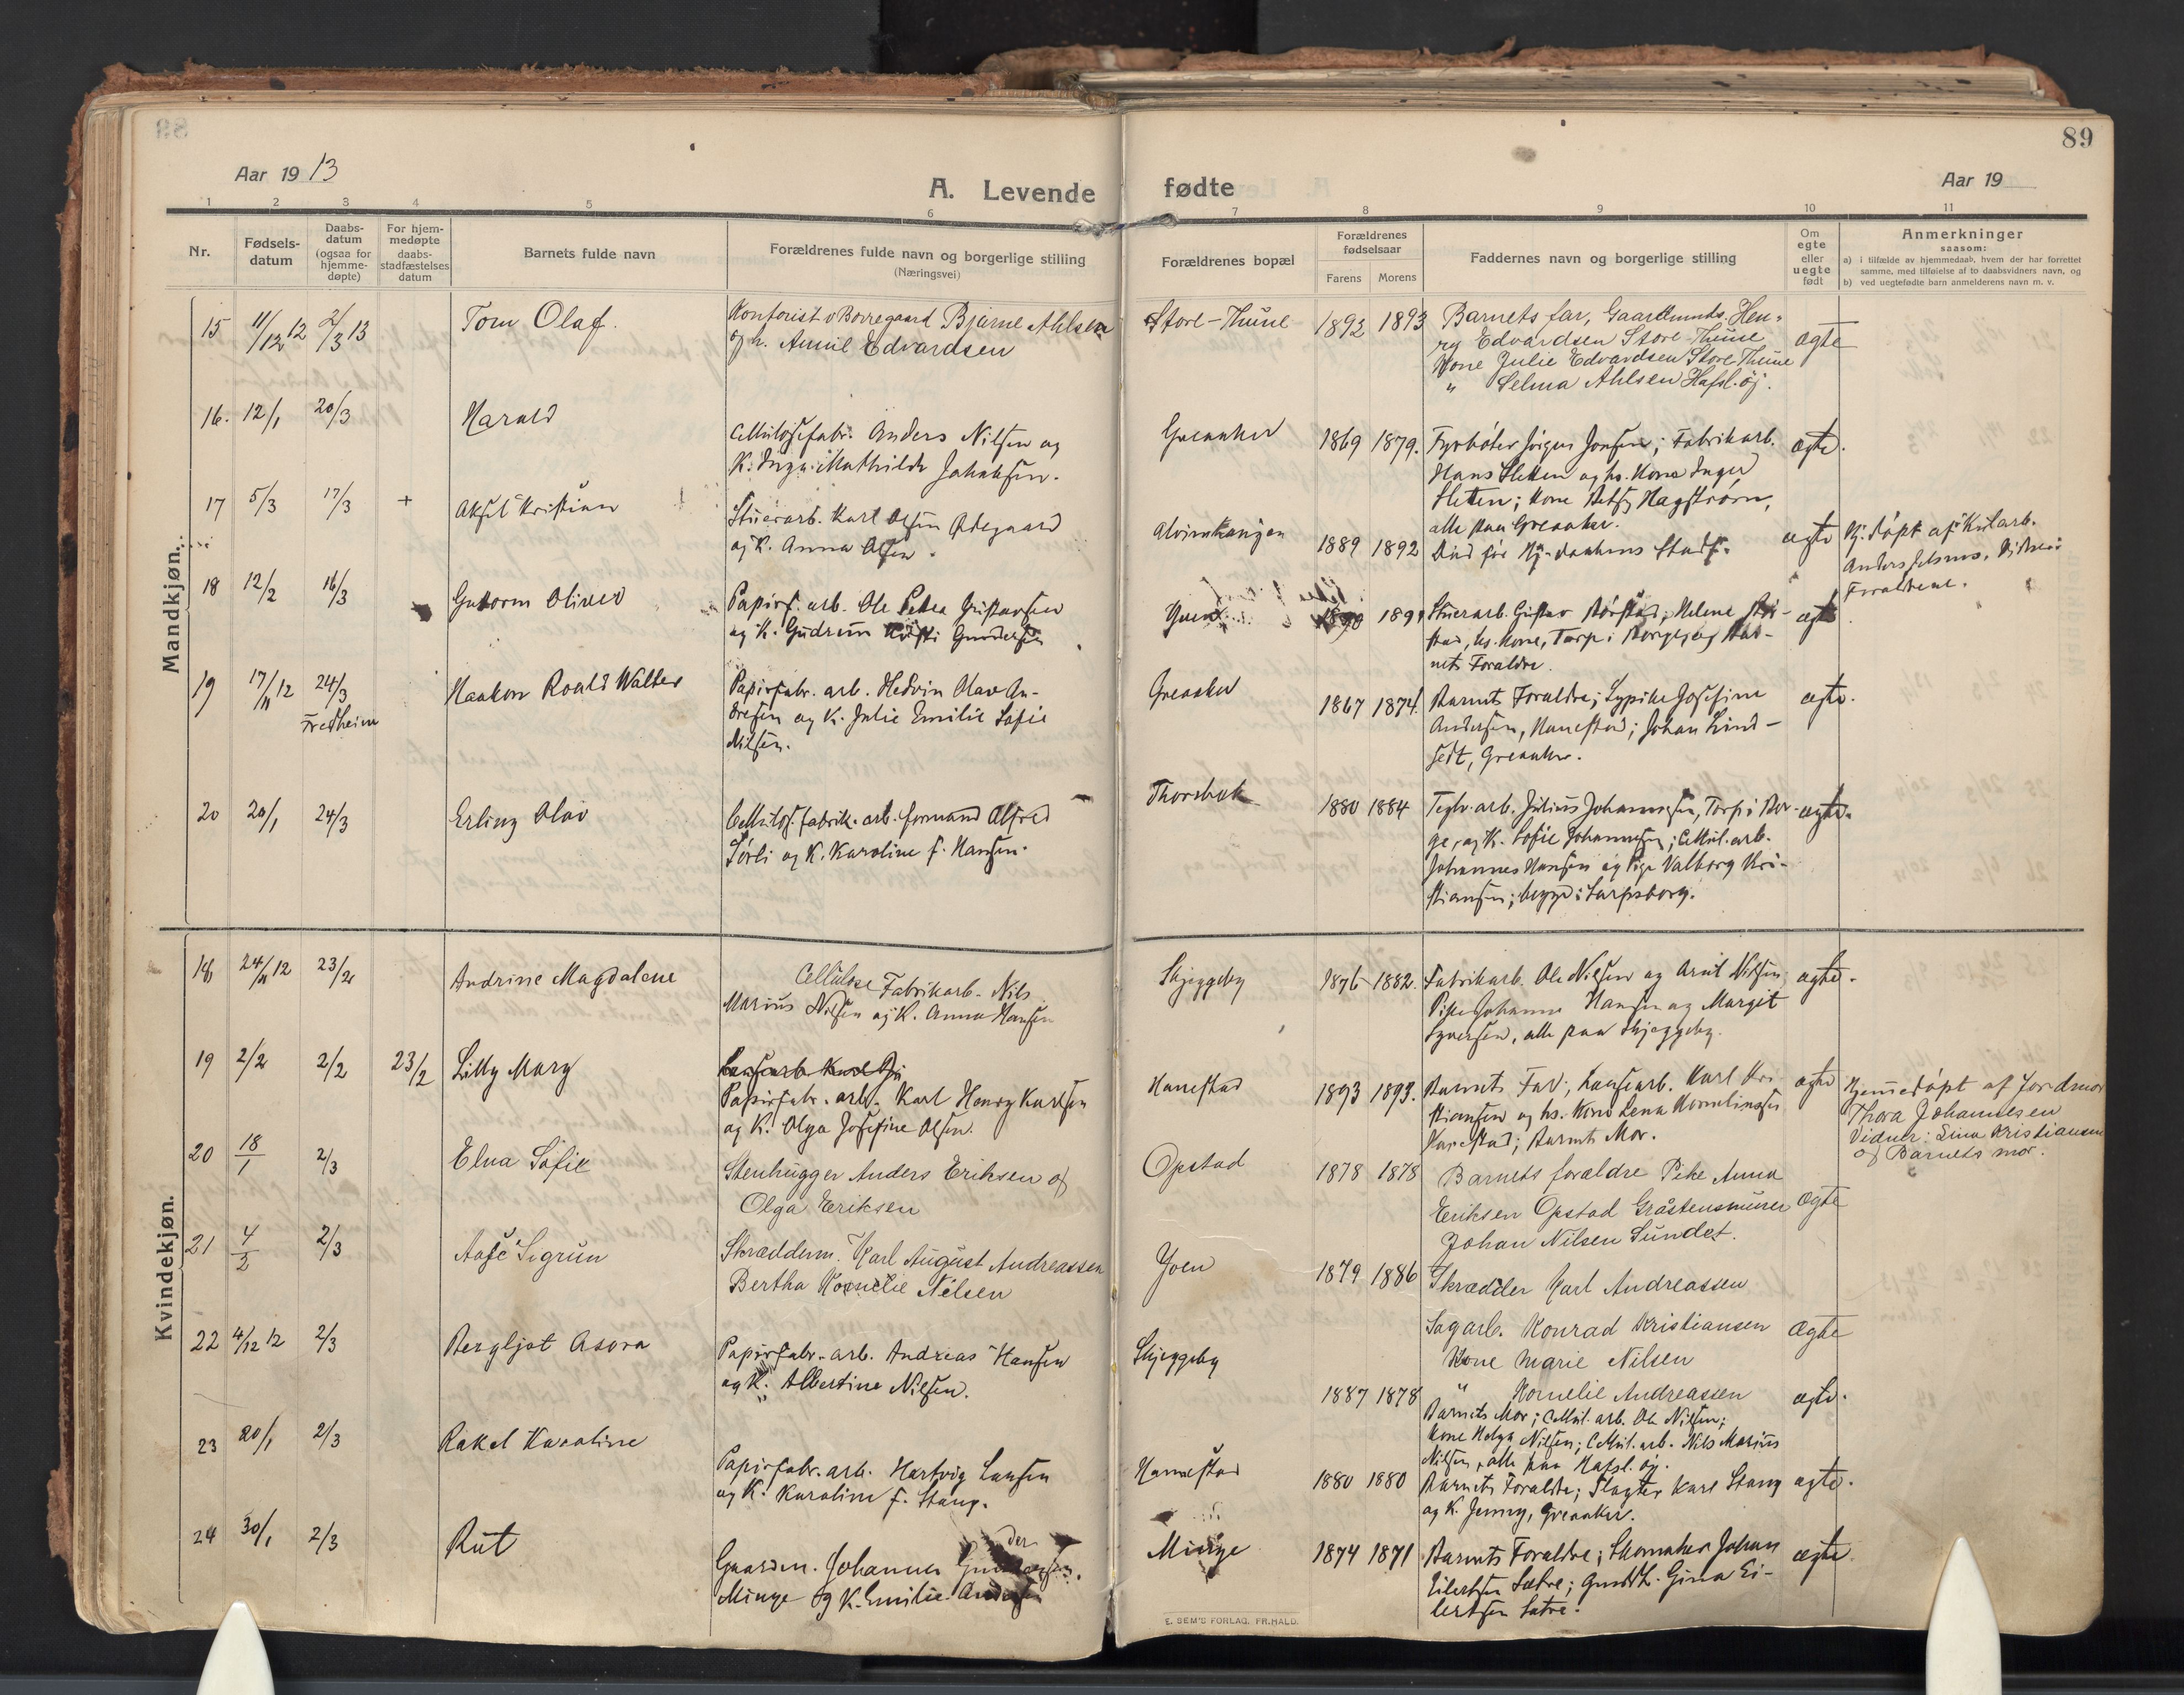 89
Aar 1913
A. Levende fødte
Aar 19
1 2 3 4 5 6 7 8 9 10 11
Nr.
Fødsels-
datum
Daabs-
datum
(ogsaa for
hjemme-
døpte)
For hjem-
medøpte
daabs-
stadfæstelses
datum
Barnets fulde navn
Forældrenes fulde navn og borgerlige stilling
(Næringsvei)
Forældrenes bopæl
Forældrenes
fødselsaar
Farens Morens
Faddernes navn og borgerlige stilling
Om
egte
eller
uegte
født
Anmerkninger
saasom:
a) i tilfælde av hjemmedaab, hvem der har forrettet
samme, med tilføielse af to daabsvidners navn, og
b) ved uegtefødte barn anmelderens navn m. v.
Mandkjøn.
15 11/12 12 2/3 13 Tom Olaf.
Kontorist v Borregaard Bjarne Ahlsen
og h. Edvardsen
Store-Thune 1892 1893
Barnets far, Gaardmands. Hen-
ry Edvardsen Store Thune
Kone Julie Edvardsen Store Thune
" Selma Ahlsen Hafsl. øj.
ægte
16. 12/1 20/3 Harald
Cellulosefabr. Anders Nilsen og
K. Inga Mathilde Jakobsen.
Greaaker 1869 1879.
Fyrbøter Jørgen Jonsen; Fabrikarb.
Hans Sletten og hs. Kone Inger
Sletten; Kone Betsy Hagstrøm,
alle paa Greaaker.
ægte.
17 5/3 17/3 + Aksel Kristian
Stuerarb. Karl Olsen Ødegaard
og K. Anna Olsen.
Alvimhaugen 1889 1892
Død før Hj-daabens Stadf.
ægte
Hj. døpt af
Anders
Forældrene.
18 12/2 16/3 Guttorm Oliver
Papirf. arb. Ole Petter Gustavsen
og K. Gudrun Gundersen
1890 1891
Stuerarb. Gustav Børstad; Helene Bør-
stad, hs. Kone, Torp i Borge, og Bar-
nets Forældre.
ægte
19 17/11 12 24/3
Fredheim
Haakon Roald Walter
Papirfabr. arb. Hedvin Olav An-
dresen og K. Julie Emilie Sofie
Nilsen.
Greaaker 1867 1874.
Barnets Forældre; Josefine
Andersen, Hannestad; Johan Lind-
sedt, Greaaker.
ægte.
20 20/1 24/3 Erling Olav
Cellulos. fabrik. arb. formand Alfred
Sørli og K. Karoline f. Hansen.
Thorsbæk 1880 1884
Teglv. arb. Julius Johannessen, Torp i Bor-
ge, og K. Sofie Johannessen; Cellul. arb.
Johannes Hansen og Pige Valborg Kri-
stiansen; begge i Sarpsborg.
ægte.
Kvindekjøn.
18 24/11 12 23/2 Andrine Magdalene
Cellulose Fabrikarb. Nils
Marius Nilsen og K. Anna Hansen
Skjeggeby 1876 1882.
Fabrikarb. Ole Nilsen og Nilsen
Pike Johanne Hansen og Margit
Syversen, alle paa Skjeggeby.
ægte.
19 2/2 2/2 23/2 Lilly Mary
Papirfabr. arb. Karl Henry Karlsen
og K. Olga Josefine Olsen.
Hannestad 1893 1893.
Barnets Far; Karl Kri-
stiansen og hs. Kone Lena
Hannestad; Barnets Mor.
ægte
Hjemmedøpt af Jordmor
Thora Johannesen
Vidner: Lina Kristiansen
og Barnets mor.
20 18/1 2/3 Elna Sofie
Stenhugger Anders Eriksen og
Olga Eriksen
Opstad 1878 1878
Barnets forældre Pike Anna
Eriksen Opstad Gråstensmurer
Johan Nilsen Sundet.
ægte
21 4/2 2/3 Aase Sigrun
Skrædderm. Karl August Andreassen
Bertha Kornelie Nilsen
Yven 1879 1886
Skrædder Karl Andreassen
Sagarb. Konrad Kristiansen
Kone Marie Nilsen
" Kornelie Andreassen
Ægte
22 4/12 12 2/3 Bergljot Asora
Papirfabr. arb. Andreas Hansen
og K. Albertine Nilsen.
Skjeggeby 1887 1878
Barnets Mor; Cellul. arb. Ole Nilsen;
Kone Helga Nilsen; Cellul. arb. Nils Marius
Nilsen, alle paa Hafsl. øj.
ægte.
23 20/1 2/3 Rakel Karoline
Papirfabr. arb. Hartvig Larsen
og K. Karoline f. Stang.
Hannestad 1880 1880
Barnets Forældre; Slagter Karl Stang
og K. Jenny, Greaaker.
ægte.
24 30/1 2/3 Rut
Gaardm. Johannes Gundersen
Minge og K. Emilie Andersen
Minge 1874 1871
Barnets Forældre; Skomaker Johan
Eilertsen Sætre; Gina Ei-
lertsen Sætre.
ægte.
E. SEM'S FORLAG. FR.HALD.